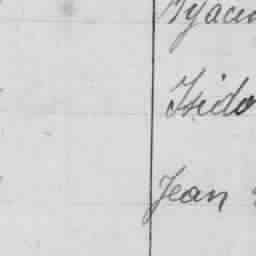 Hyacin
Isido
Jean